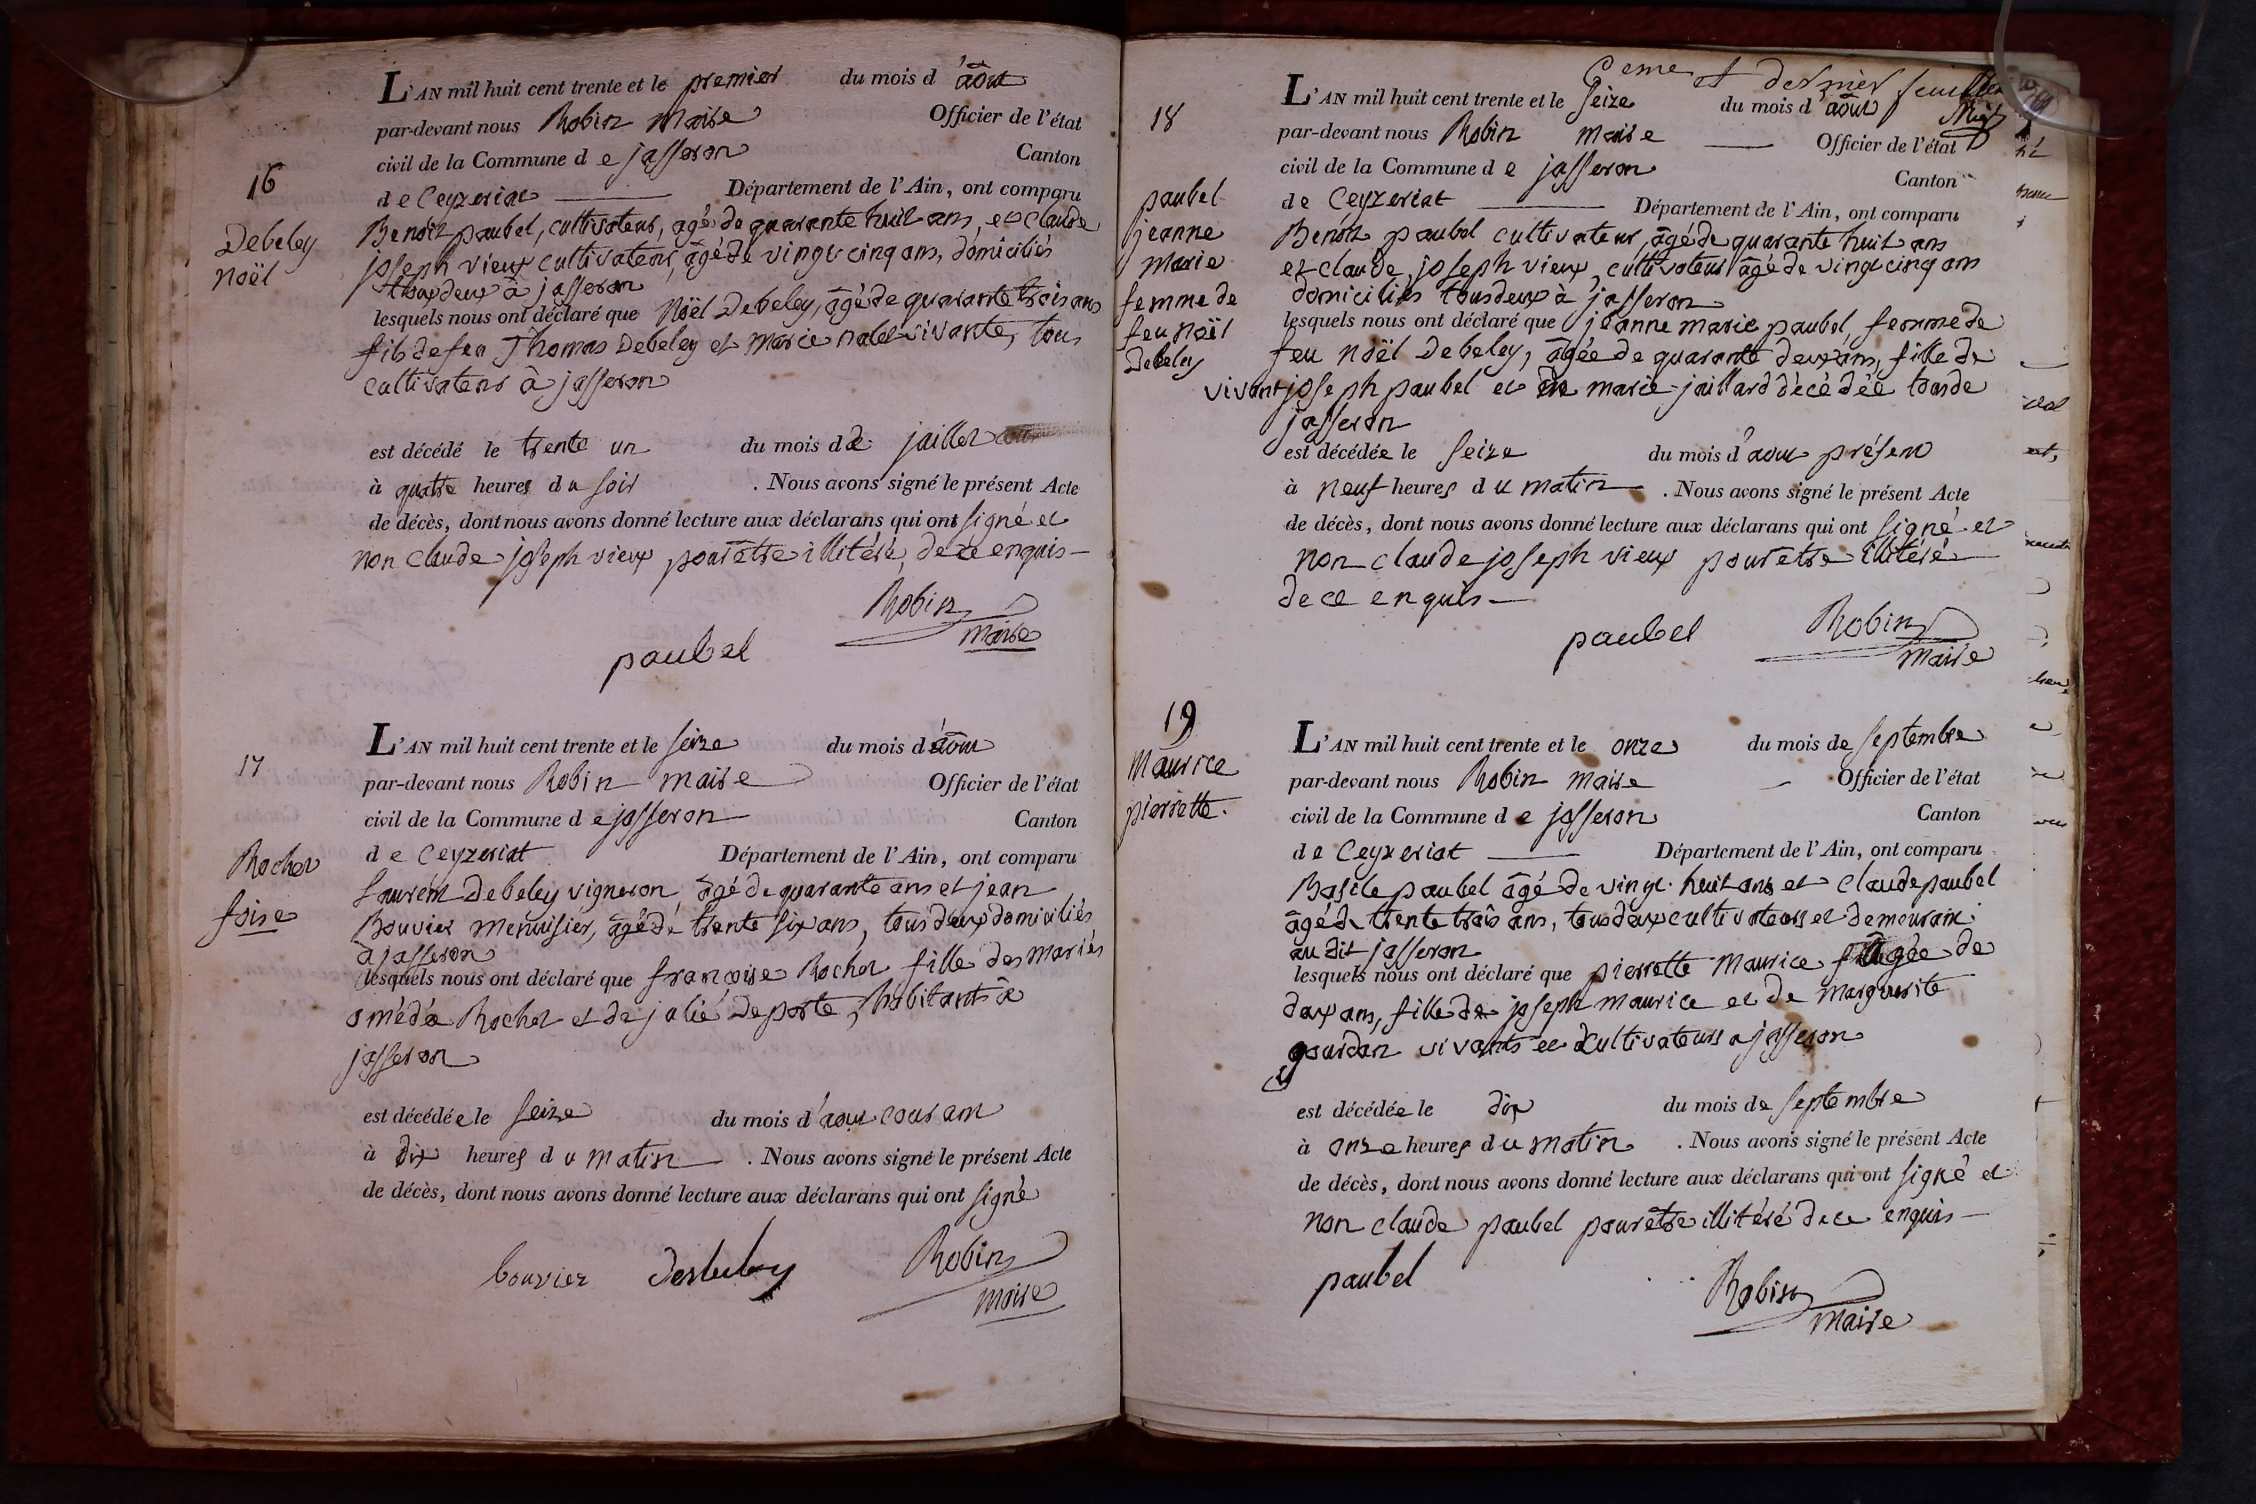 16
Debeley
Noël
L'AN mil huit cent trente et le premier du mois d'août
par-devant nous Robin Maire Officier de l'état
civil de la Commune de jasseron Canton
de Ceyzeriat Département de l'Ain, ont comparu
Benoit paubel, cultivateur, agé de quarante huit ans, et claude
joseph vieux cultivateur, âgé de vingt cinq ans, domiciliés
tous deux à jasseron
lesquels nous ont déclaré que Noël Debeley, âgé de quarante trois ans
fils de feu Thomas Debeley et marie nalet vivante, tous
cultivateurs à jasseron
est décédé le trente un du mois de juillet
à quatre heures du soir . Nous avons signé le présent Acte
de décès, dont nous avons donné lecture aux déclarans qui ont signé et
non claude joseph vieux pour être illitéré, de ce enquis
Robin
maire
paubel
17
Rochet
foise
L'AN mil huit cent trente et le seize du mois d'août
par-devant nous Robin maire Officier de l'état
civil de la Commune de jasseron Canton
de Ceyzeriat Département de l'Ain, ont comparu
Laurent Debeley vigneron âgé de quarante ans et jean
Bouvier menuisier, âgé de trente six ans, tous deux domiciliés
a jasseron
lesquels nous ont déclaré que françoise Rochet fille des mariés
amédé Rochet et de julie deporte, habitants à
jasseron
est décédée le seize du mois d'aout courant
à dix heures du matin . Nous avons signé le présent Acte
de décès, dont nous avons donné lecture aux déclarans qui ont signé
bouvier Debeley Robin
maire
6eme et dernier feuillet
18
paubel
jeanne
marie
femme de
feu noël
Debeley
L'AN mil huit cent trente et le seize du mois d'août
par-devant nous Robin maire Officier de l'état
civil de la Commune de jasseron Canton
de Ceyzeriat Département de l'Ain, ont comparu
Benoit paubel cultivateur, âgé de quarante huit ans
et claude joseph vieux, cultivateur âgé de vingt cinq ans
domiciliés tous deux à jasseron
lesquels nous ont déclaré que jeanne marie paubel, femme de
feu Noël Debeley, âgée de quarante deux ans, fille de
vivant joseph paubel et de marie jaillard décédée tous de
jasseron
est décédée le seize du mois d'aout présent
à neuf heures du matin . Nous avons signé le présent Acte
de décès, dont nous avons donné lecture aux déclarans qui ont signé et
non claude joseph vieux pour être illitéré
de ce enquis
paubel Robin
maire
19
Maurice
pierrette.
L'AN mil huit cent trente et le onze du mois de septembre
par-devant nous Robin maire Officier de l'état
civil de la Commune de jasseron Canton
de Ceyzeriat Département de l'Ain, ont comparu
Basile paubel âgé de vingt huit ans et claude paubel
âgé de trente trois ans, tous deux cultivateurs et demeurant
au dit jasseron
lesquels nous ont déclaré que pierrette maurice âgée de
deux ans, fille de joseph maurice et de marguerite
gourdan vivants et cultivateurs a jasseron
est décédée le dix du mois de septembre
à onze heures du matin . Nous avons signé le présent Acte
de décès, dont nous avons donné lecture aux déclarans qui ont signé et
non claude paubel pour être illitéré de ce enquis
paubel
Robin
maire